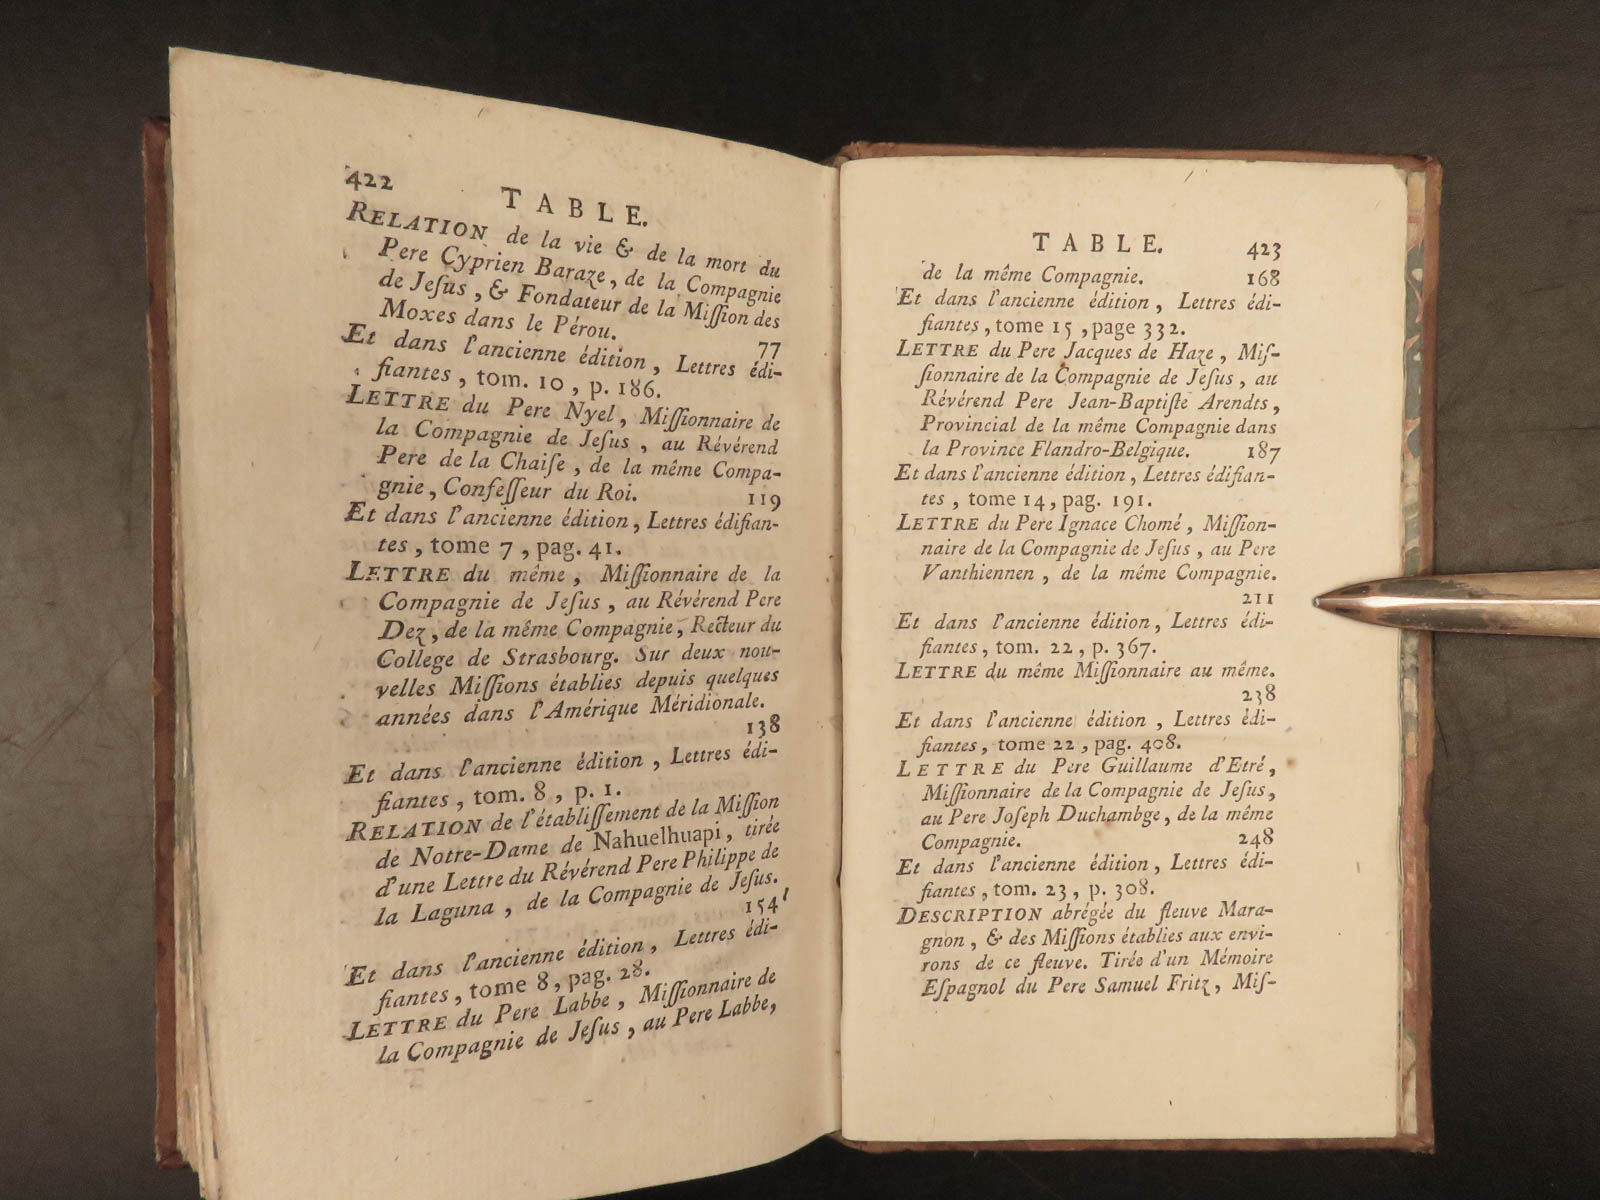 422
TABLE.
RELATION de la vie & de la mort du
Pere Cyprien Baraze, de la Compagnie
de Jeſus, & Fondateur de la Miſſion des
Moxes dans le Pérou. 77
Et dans l'ancienne édition, Lettres édi-
fiantes, tom. 10, p. 186.
LETTRE du Pere Nyel, Miſſionnaire de
la Compagnie de Jeſus, au Révérend
Pere de la Chaiſe, de la même Compa-
gnie, Confeſſeur du Roi. 119
Et dans l'ancienne édition, Lettres édifian-
tes, tome 7, pag. 41.
LETTRE du même, Miſſionnaire de la
Compagnie de Jeſus, au Révérend Pere
Dez, de la même Compagnie, Recteur du
College de Strasbourg. Sur deux nou-
velles Miſſions établies depuis quelques
années dans l'Amérique Méridionale.
138
Et dans l'ancienne édition, Lettres édi-
fiantes, tom. 8, p. 1.
RELATION de l'établiſſement de la Miſſion
de Notre-Dame de Nahuelhuapi, tirée
d'une Lettre du Révérend Pere Philippe de
la Laguna, de la Compagnie de Jeſus.
154
Et dans l'ancienne édition, Lettres édi-
fiantes, tome 8, pag. 28.
LETTRE du Pere Labbe, Miſſionnaire de
la Compagnie de Jeſus, au Pere Labbe,
TABLE. 423
de la même Compagnie. 168
Et dans l'ancienne édition, Lettres édi-
fiantes, tome 15, page 332.
LETTRE du Pere Jacques de Haze, Miſ-
ſionnaire de la Compagnie de Jeſus, au
Révérend Pere Jean-Baptiſte Arendts,
Provincial de la même Compagnie dans
la Province Flandro-Belgique. 187
Et dans l'ancienne édition, Lettres édifian-
tes, tome 14, pag. 191.
LETTRE du Pere Ignace Chomé, Miſſion-
naire de la Compagnie de Jeſus, au Pere
Vanthiennen, de la même Compagnie.
211
Et dans l'ancienne édition, Lettres édi-
fiantes, tom. 22, p. 367.
LETTRE du même Miſſionnaire au même.
238
Et dans l'ancienne édition, Lettres édi-
fiantes, tome 22, pag. 408.
LETTRE du Pere Guillaume d'Etré,
Miſſionnaire de la Compagnie de Jeſus,
au Pere Joſeph Duchambge, de la même
Compagnie. 248
Et dans l'ancienne édition, Lettres édi-
fiantes, tom. 23, p. 308.
DESCRIPTION abrégée du fleuve Mara-
gnon, & des Miſſions établies aux envi-
rons de ce fleuve. Tirée d'un Mémoire
Eſpagnol du Pere Samuel Fritz, Miſ-